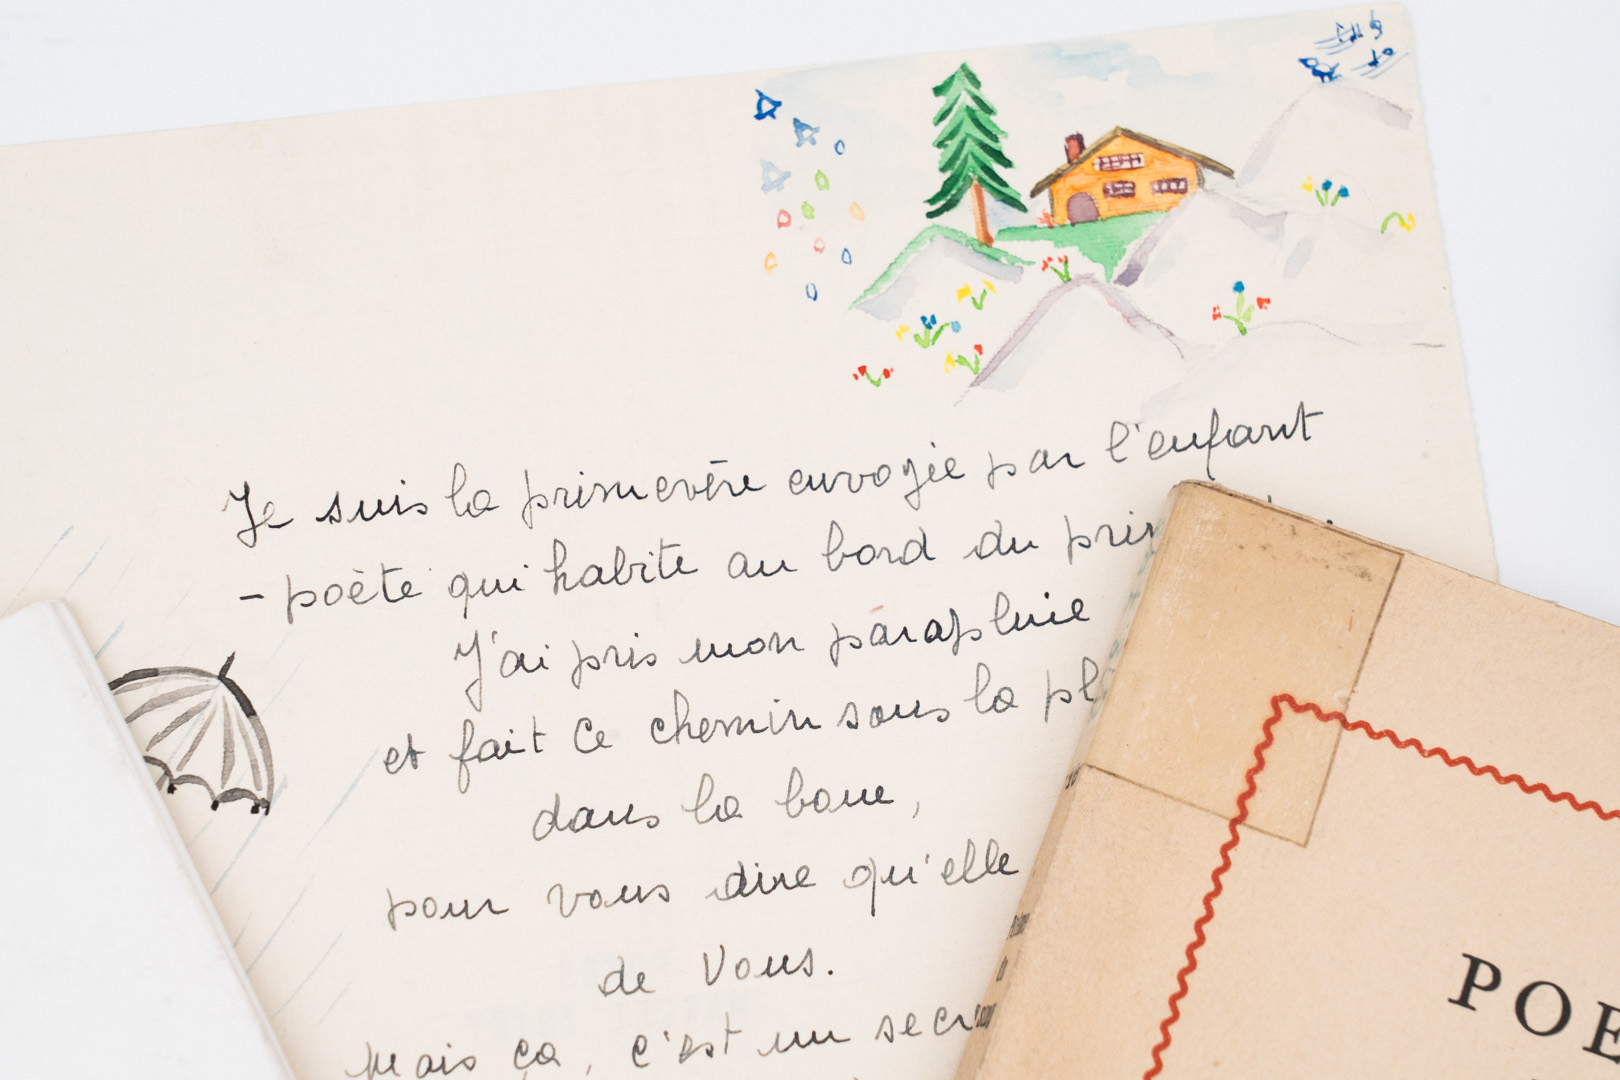 Je suis la primevère envoyée par l'enfant
- poète qui habite au bord du prin
J'ai pris mon parapluie
et fait ce chemin sous la pl
dans la boue,
pour vous dire qu'elle
de Vous.
Mais ça, c'est un secre
POE